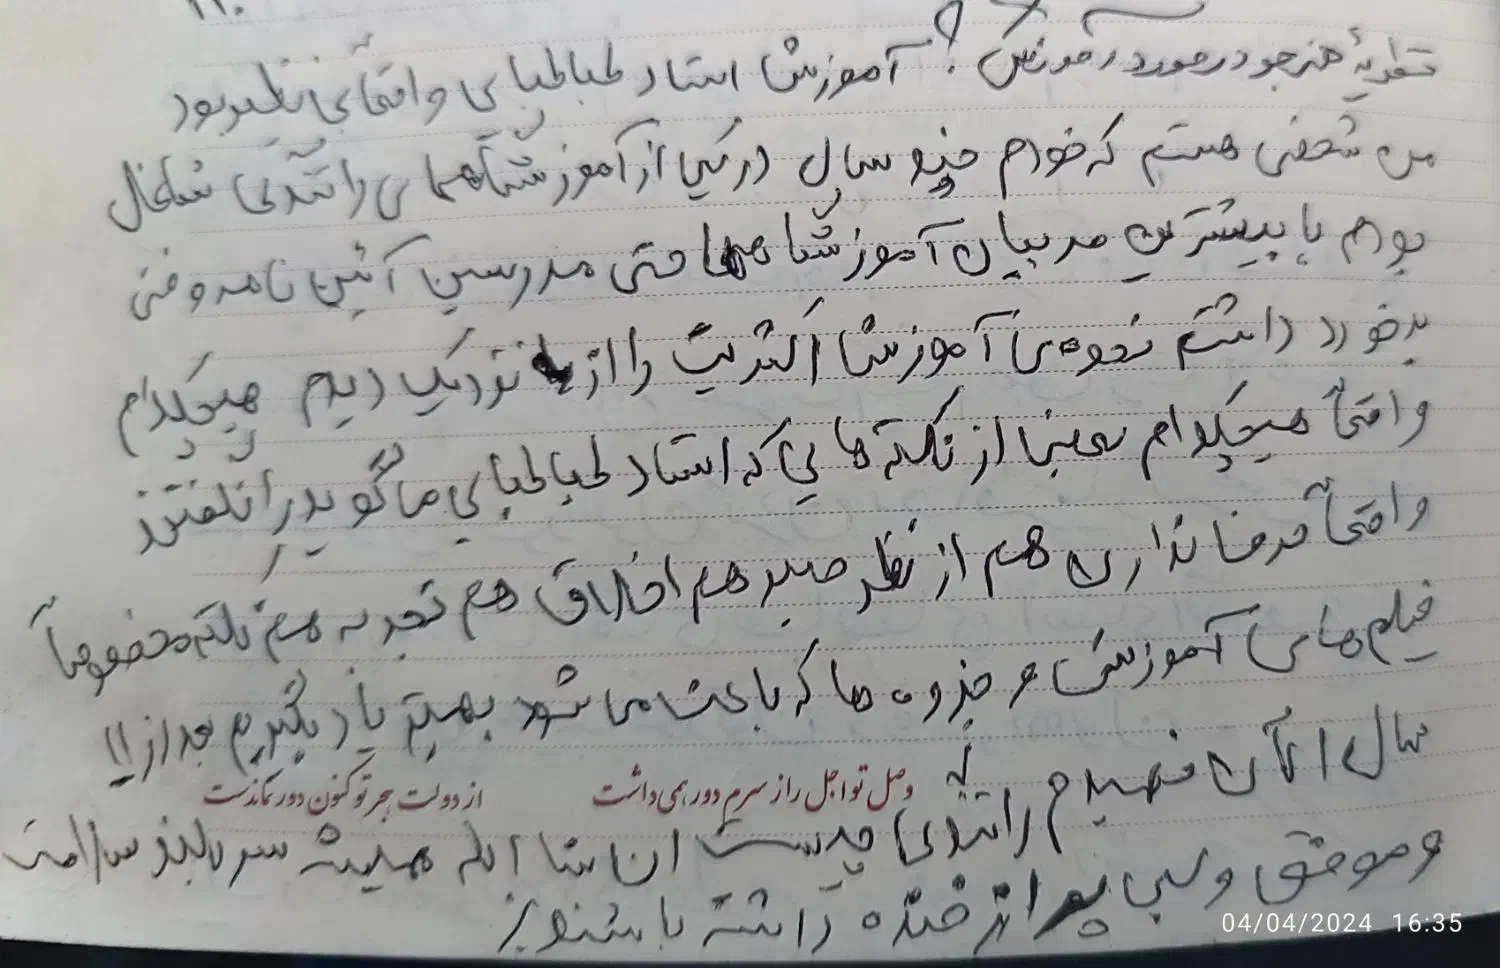 نظریهٔ هنرجو در مورد آموزش ؟ آموزش استاد طباطبایی واقعاً بی نظیر بود
من شخصی هستم که خودم چند سال در یکی از آموزشگاههای رانندگی شاغل
بودم با بیشترین مربیان آموزشگاهها حتی مدرسین آئین نامه و فنی
برخورد داشتم نحوه‌ی آموزش اکثریت را از نزدیک دیدم هیچکدام
واقعاً هیچکدام بعضی از نکته هایی که استاد طباطبایی می گوید را نگفتند
واقعاً قدردانی هم از نظر صبر هم اخلاق هم تجربه هم نکته مخصوصاً
فیلم های آموزشی و جزوه ها که باعث می شود بهتر یاد بگیریم بعد از ۱۱
سال الان فهمیدم که
وصل تو اجل را ز سرم دور همی داشت از دولت هجر تو کنون دور نماندست
رانندگی چیست ان شا الله همیشه سر بلند سلامت
و موفق و لبی پر از خنده داشته باشند
04/04/2024 16:35